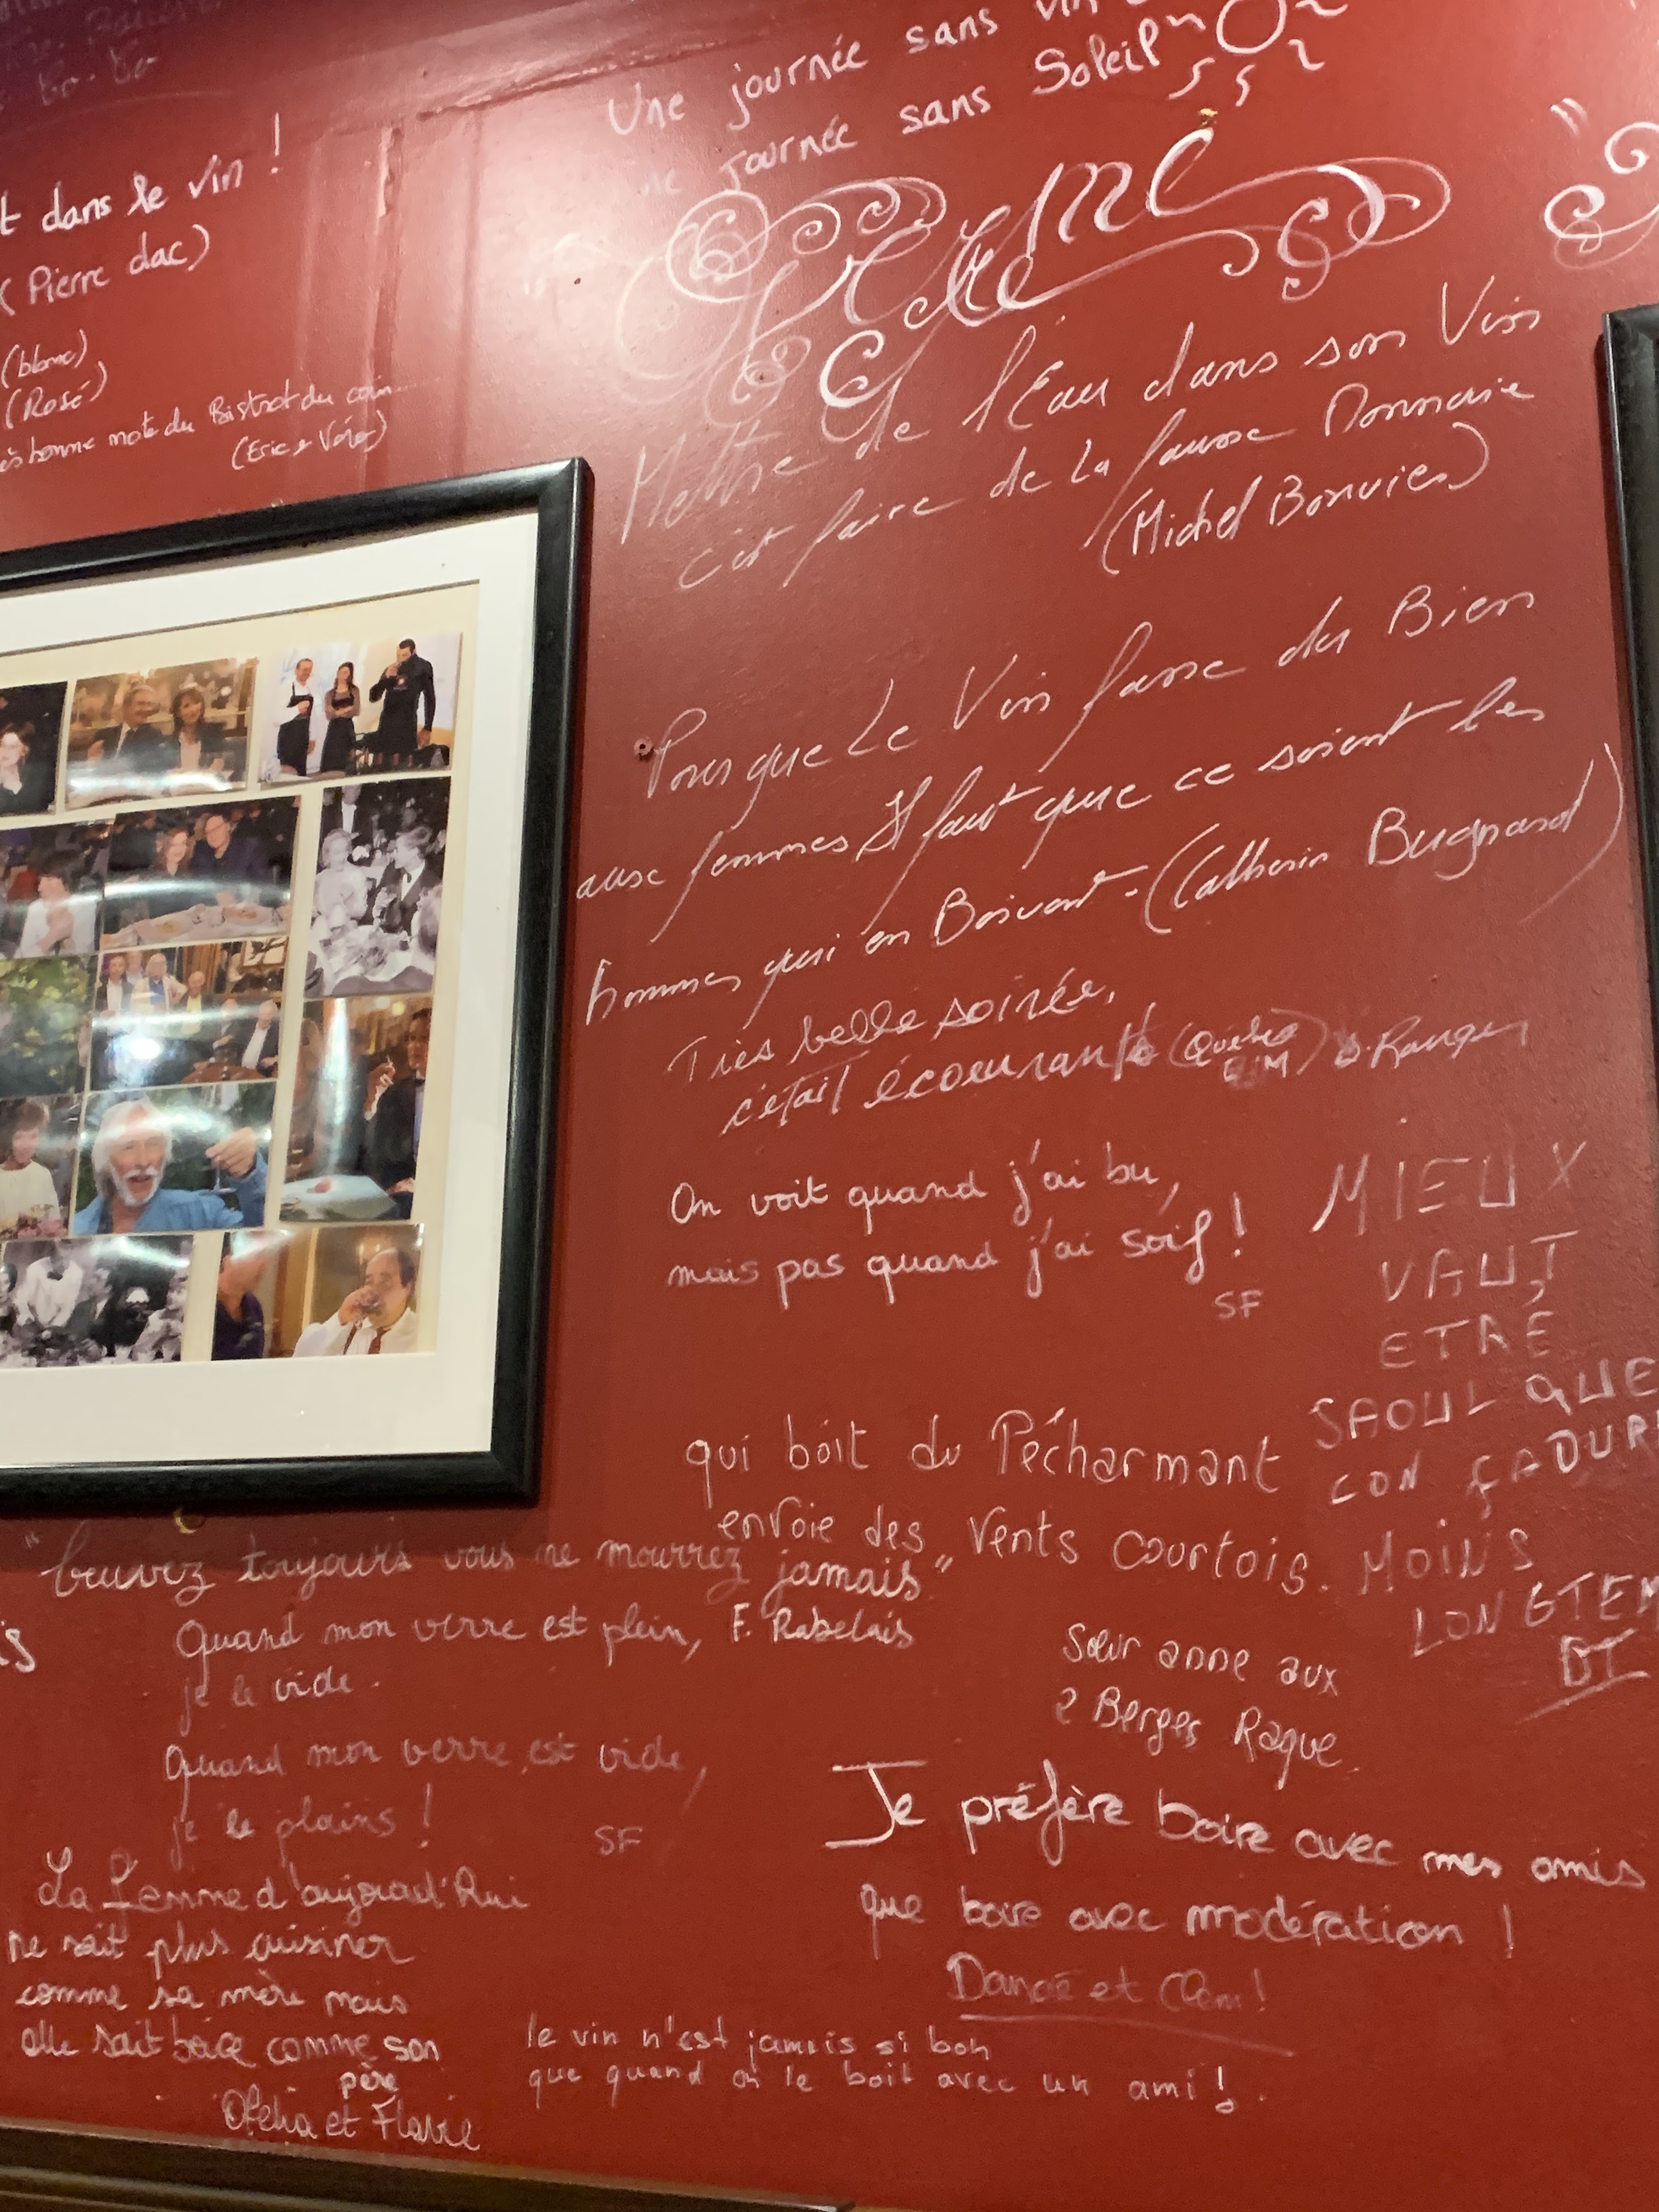 t dans le vin !
(Pierre dac)
(blanc)
(Rosé)
bonne mote du Bistrot du coin....
Une journée sans vin
journée sans Soleil
Mettre de l'Eau dans son Vin
c'est faire de La fausse Monnaie
(Michel Bouvier)
Pour que Le Vin fasse du Bien
aux femmes Il faut que ce soient les
hommes qui en Boivent - (Catherin Bugnard)
Très belle soirée,
c'était écoeurant
On voit quand j'ai bu,
mais pas quand j'ai soif !
SF
MIEUX
VAUT
ETRE
SAOUL QUE
CON ÇA DURE
MOINS
LONGTEM
qui boit du Pécharmant
envoie des vents courtois.
Sœur anne aux
2 Berges Raque
"beuvez toujours vous ne mourrez jamais"
F. Rabelais
is
Quand mon verre est plein,
je le vide.
Quand mon verre est vide,
je le plains !
SF
La femme d'aujourd'hui
ne sait plus cuisiner
comme sa mère mais
elle sait boire comme son
père
Ofelia et Flavie
Je préfère boire avec mes amis
que boire avec modération !
Danaé et Clem!
le vin n'est jamais si bon
que quand on le boit avec un ami !.